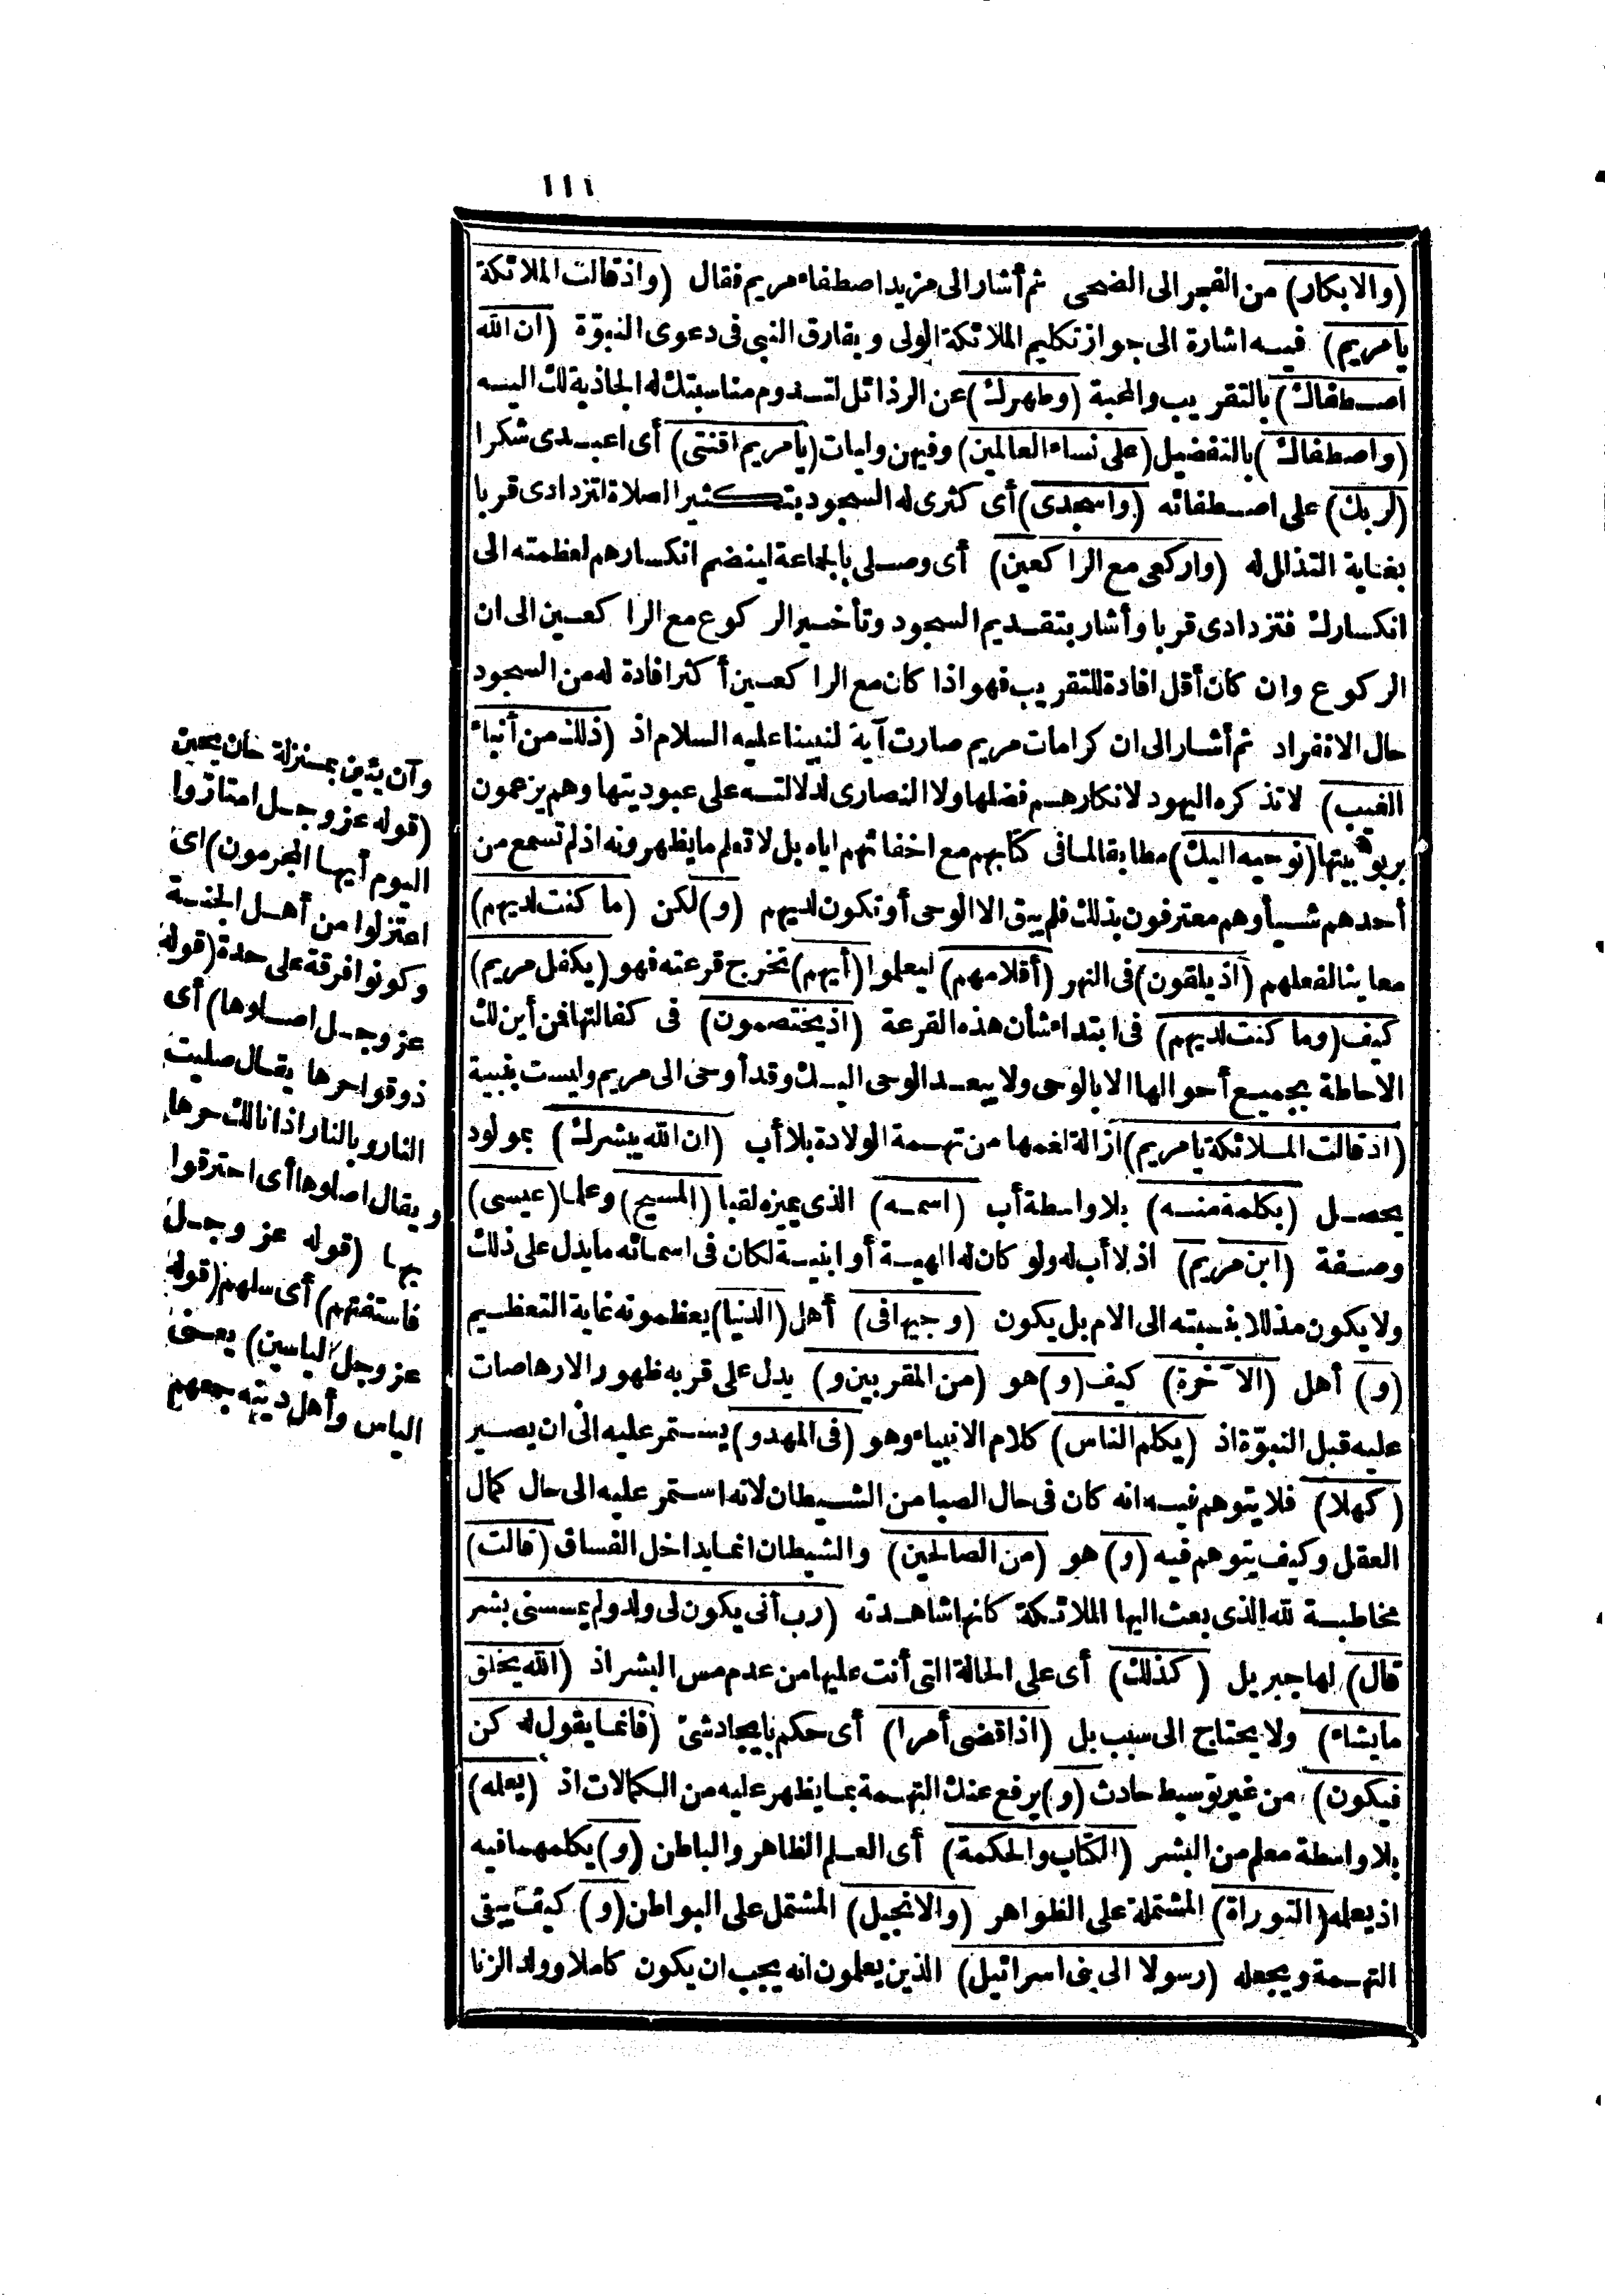 ١١١
(والابكار) من الفجر الى الضحى ثم أشار الى مزيد اصطفاء مريم فقال (واذ قالت الملائكة
يامريم) فيه اشارة الى جواز تكليم الملائكة الولى ويفارق النبى فى دعوى النبوّة (ان الله
اصطفاك) بالتقريب والمحبة (وطهرك) عن الرذائل لتدوم مناسبتك له الجاذبة لك اليه
(واصطفاك) بالتفضيل (على نساء العالمين) وفيهن وليات (يامريم اقنتى) أى اعبدى شكرا
(لربك) على اصطفائه (واسجدى) أى كثرى له السجود بتكثير الصلاة لتزدادى قربا
بغاية التذلل له (واركعى مع الراكعين) أى وصلى بالجماعة لينضم انكسارهم لعظمته الى
انكسارك فتزدادى قربا وأشار بتقديم السجود وتأخير الركوع مع الراكعين الى ان
الركوع وان كان أقل افادة للتقريب فهو اذا كان مع الراكعين أكثر افادة له من السجود
حال الانفراد ثم أشار الى ان كرامات مريم صارت آية لنبينا عليه السلام اذ (ذلك من أنباء
الغيب) لا تذكره اليهود لانكارهم فضلها ولا النصارى لدلالته على عبوديتها وهم يزعمون
بربوبيتها (نوحيه اليك) مطابقا لما فى كتابهم مع اخفائهم اياه بل لا تعلم ما يظهرونه اذ لم تسمع من
أحدهم شيأ وهم معترفون بذلك فلم يبق الا الوحى أو تكون لديهم (و) لكن (ما كنت لديهم)
معاينا لفعلهم (اذ يلقون) فى النهر (أقلامهم) ليعلموا (أيهم) تخرج قرعته فهو (يكفل مريم)
كيف (وما كنت لديهم) فى ابتداء شأن هذه القرعة (اذ يختصمون) فى كفالتها فمن أين لك
الاحاطة بجميع أحوالها الا بالوحى ولا يبعد الوحى اليك وقد أوحى الى مريم وليست بنبية
(اذ قالت الملائكة يامريم) ازالة لغمها من تهمة الولادة بلا أب (ان الله يبشرك) بمولود
يحصل (بكلمة منه) بلا واسطة أب (اسمه) الذى يميزه لقبا (المسيح) وعلما (عيسى)
وصفة (ابن مريم) اذ لا أب له ولو كان له الهية أو ابنية لكان فى اسمائه ما يدل على ذلك
ولا يكون مذللا بنسبته الى الام بل يكون (وجيها فى) أهل (الدنيا) يعظمونه غاية التعظيم
(و) أهل (الآخرة) كيف (و) هو (من المقربين و) يدل على قربه ظهور الارهاصات
عليه قبل النبوّة اذ (يكلم الناس) كلام الانبياء وهو (فى المهد و) يستمر عليه الى ان يصير
(كهلا) فلا يتوهم فيه انه كان فى حال الصبا من الشيطان لانه استمر عليه الى حال كمال
العقل وكيف يتوهم فيه (و) هو (من الصالحين) والشيطان انما يداخل الفساق (قالت)
مخاطبة لله الذى بعث اليها الملائكة كانها شاهدته (رب أنى يكون لى ولد ولم يمسسنى بشر
قال) لها جبريل (كذلك) أى على الحالة التى أنت عليها من عدم مس البشر اذ (الله يخلق
ما يشاء) ولا يحتاج الى سبب بل (اذا قضى أمرا) أى حكم بايجاد شئ (فانما يقول له كن
فيكون) من غير توسيط حادث (و) يرفع عنك التهمة بما يظهر عليه من الكمالات اذ (يعلمه)
بلا واسطة معلم من البشر (الكتاب والحكمة) أى العلم الظاهر والباطن (و) يكلمهما فيه
اذ يعلمه (التوراة) المشتملة على الظواهر (والانجيل) المشتمل على البواطن (و) كيف يبقى
التهمة ويجعله (رسولا الى بنى اسرائيل) الذين يعلمون انه يجب ان يكون كاملا وولد الزنا
وآن يئين بمنزلة حان يحين
(قوله عز وجل امتازوا
اليوم أيها المجرمون) اى
اعتزلوا من أهل الجنة
وكونوا فرقة على حدة (قوله
عز وجل اصلوها) أى
ذوقوا حرها يقال صليت
النار وبالنار اذا نالك حرها
ويقال اصلوها أى احترقوا
بها (قوله عز وجل
فاستفتهم) أى سلهم (قوله
عز وجل الياسين) يعنى
الياس وأهل دينه جمعهم